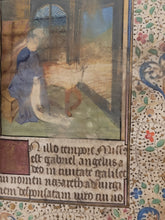 In illo tempore Miss
est gabriel angelus a
deo in ciuitate galilee
cui nomen nazareth ad uirgi
nem desponsatam uiro cui no